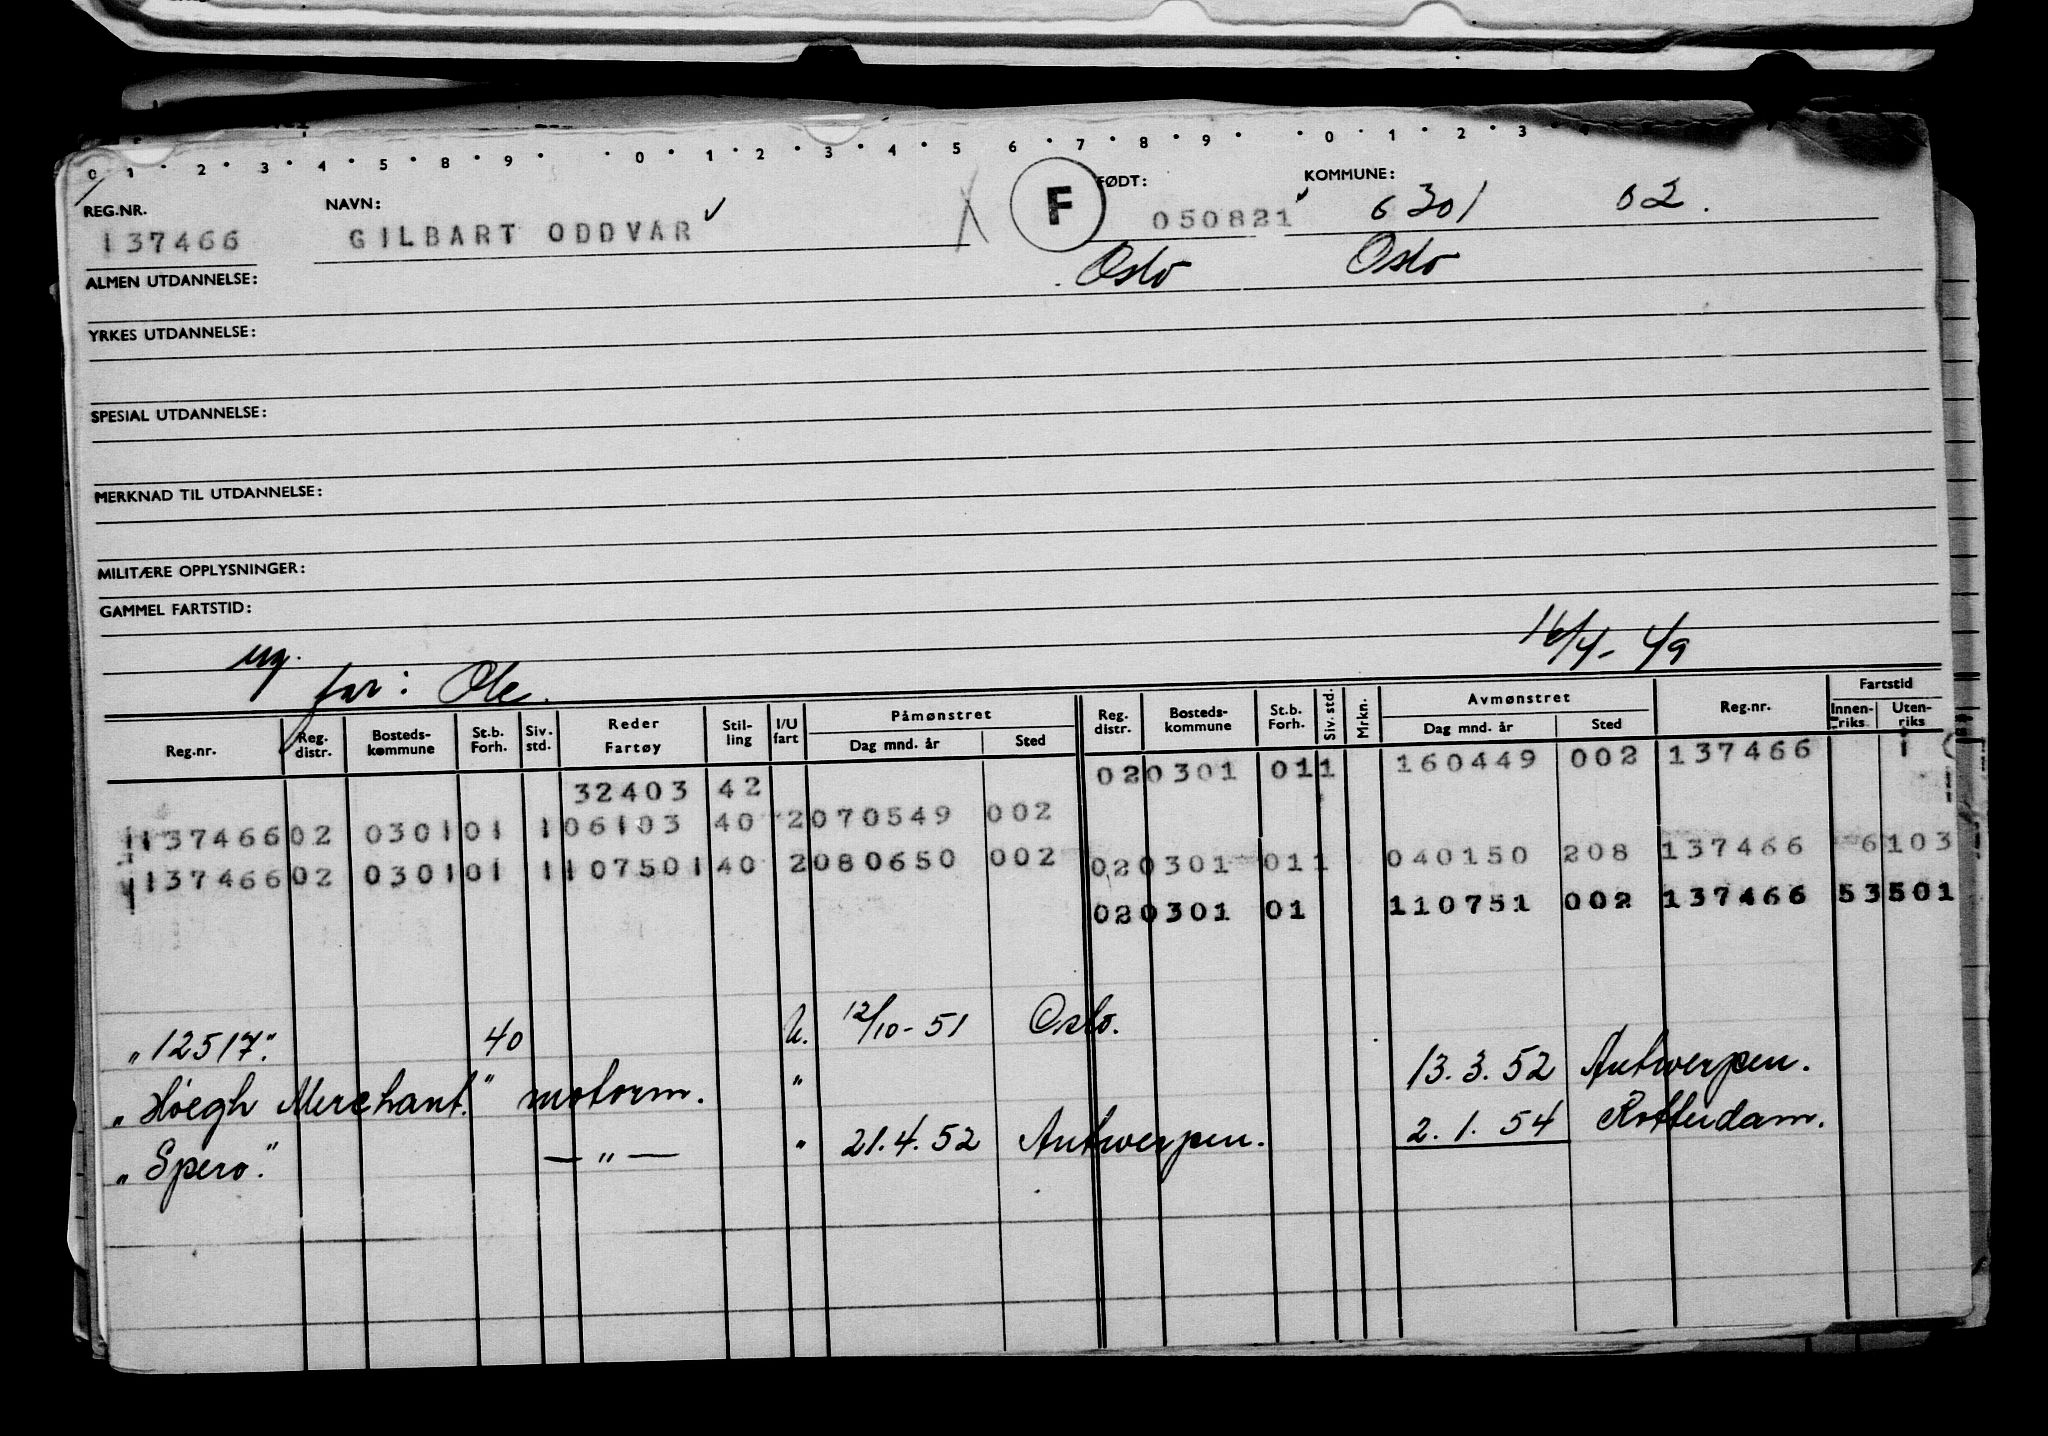 0 1 2 3 4 5 8 9 0 1 2 3 4 5 6 7 8 9 0 1 2 3
REG.NR. NAVN: F FØDT: KOMMUNE:
137466 GILBART ODDVAR 050821 0301 02.
Oslo Oslo
ALMEN UTDANNELSE:
YRKES UTDANNELSE:
SPESIAL UTDANNELSE:
MERKNAD TIL UTDANNELSE:
MILITÆRE OPPLYSNINGER:
GAMMEL FARTSTID:
16/4-49
far: Ole.
Reg.nr. Reg. distr. Bosteds-kommune St.b. Forh. Siv. std. Reder Fartøy Stil-ling I/U fart Påmønstret Dag mnd. år Sted Reg. distr. Bosteds-kommune St.b. Forh. Siv. std. Mrkn. Avmønstret Dag mnd. år Sted Reg.nr. Fartstid Innen-riks Uten-riks
32403 42 020301 011 160449 002 137466 1
113746602 030101 106103 40 2070549 002
020301 011 040150 208 137466 6103
113746602 030101 1107501 40 2080650 002
020301 01 110751 002 137466 53501
"12517". 40 U. 12/10-51 Oslo.
"Høegh Merchant." motorm. " 13.3.52 Antwerpen.
"Spero". — " — " 21.4.52 Antwerpen. 2.1.54 Rotterdam.